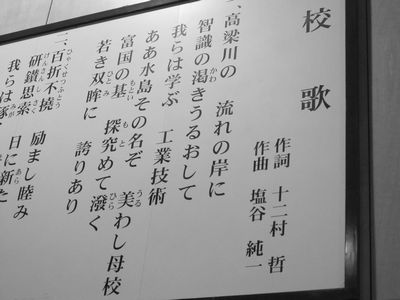 校歌
作詞 十二村 哲
作曲 塩谷 純一
一、高梁川の 流れの岸に
智識の渇きうるおして
我らは学ぶ 工業技術
ああ水島その名ぞ 美わし母校
富国の基 探究めて潑く
若き双眸に 誇りあり
二、百折不撓 励まし睦み
研鑚思索 日に新た
我らは